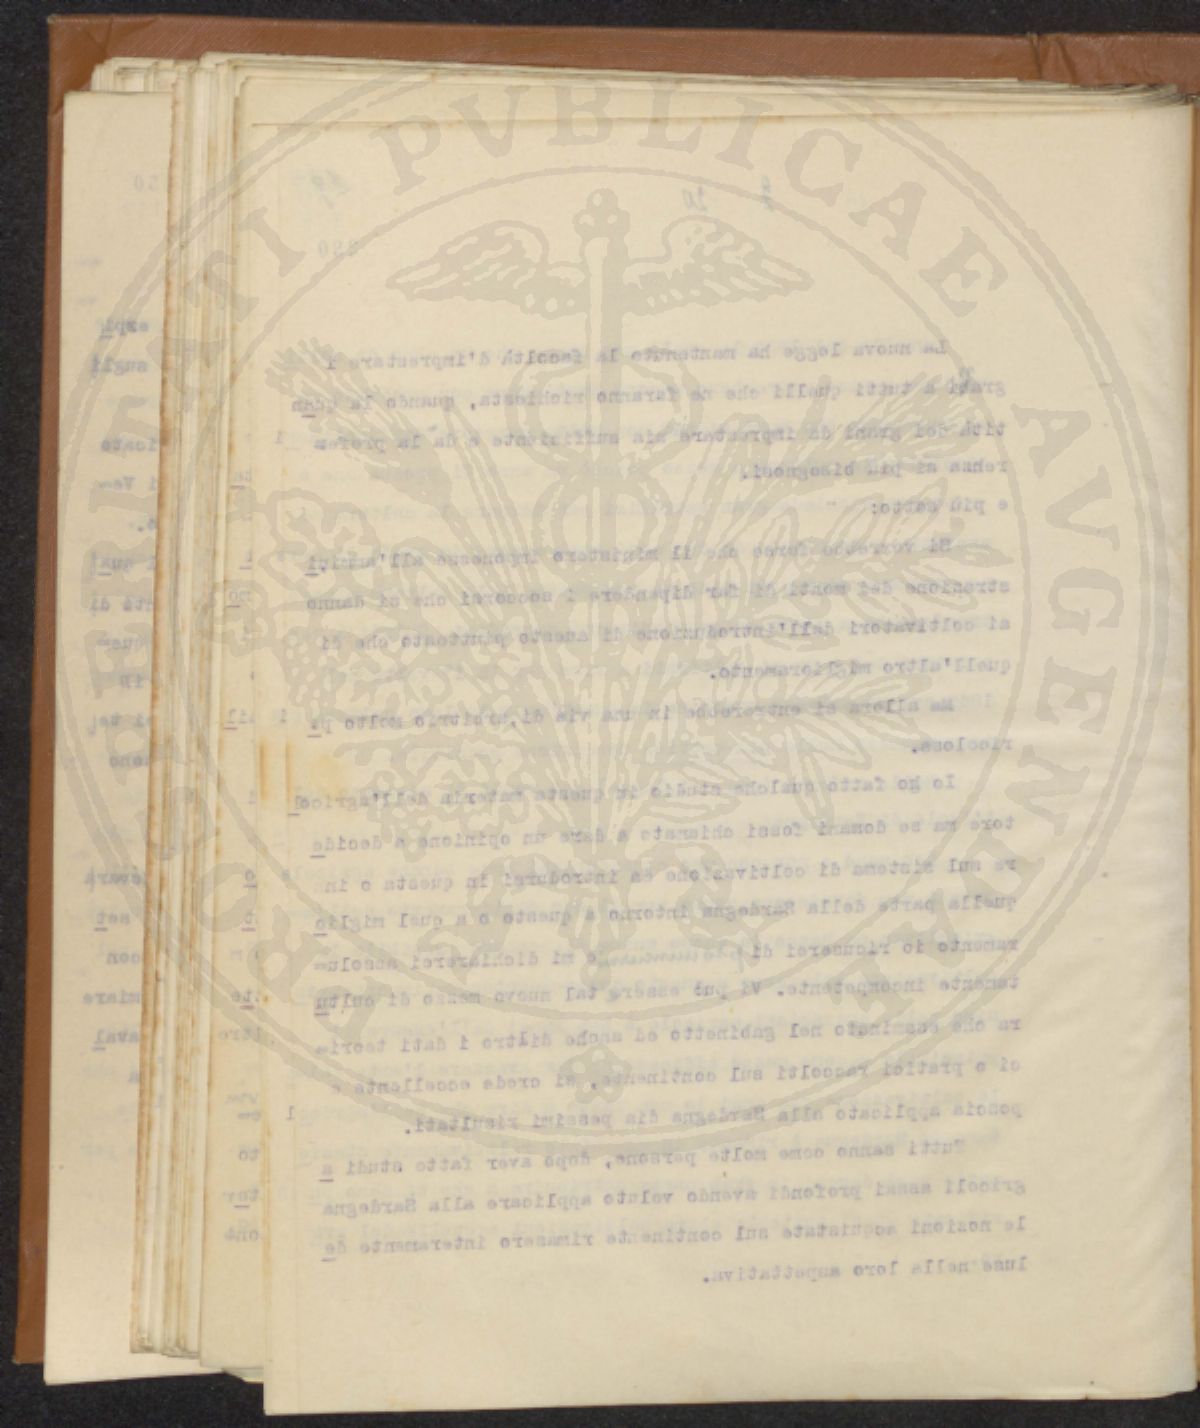 PROSPERITATI PVBLICAE AVGENDAE
20
250
La nuova legge ha mantenuta la facoltà d'imprestare i
grani a tutti quelli che ne faranno richiesta, quando la quan
tità dei grani da imprestare sia sufficiente e da la prefe=
renza ai più bisognosi.
e più sotto: "
Si vorrebbe forse che il ministero imponesse all'ammini
strazione dei monti di far dipendere i soccorsi che si danno
ai coltivatori dall'introduzione di questo piuttosto che di
quell'altro miglioramento.
Ma allora si entrerebbe in una via di arbitrio molto p.
ricolosa.
Io ho fatto qualche studio in questa materia dell'agricol
tore ma se domani fossi chiamato a dare un opinione a decide
re sul sistema di coltivazione da introdursi in questa o in
quella parte della Sardegna intorno a questo o a quel miglio
ramento io ricuserei di e mi dichiarerei assolu=
tamente incompetente. Vi può essere tal nuovo mezzo di cultu
ra che esaminato nel gabinetto ed anche dietro i dati teori=
ci o pratici raccolti sul continente, si crede eccellente e
poscia applicato alla Sardegna dia pessimi risultati.
Tutti sanno come molte persone, dopo aver fatto studi a
gricoli assai profondi avendo voluto applicare alla Sardegna
le nozioni acquistate sul continente rimasero interamente de
luse nella loro aspettativa.